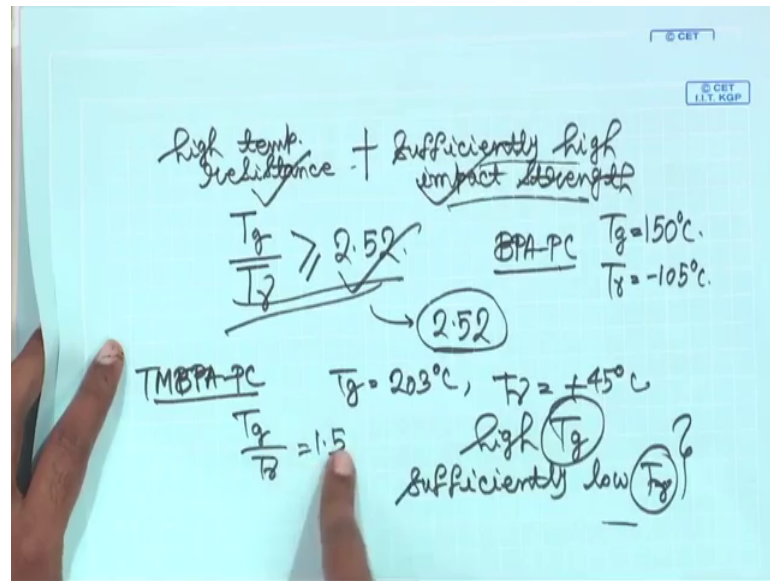 © CET
© CET
I.I.T. KGP
high temp. resistance + sufficiently high impact strength
Tg/Tγ ⩾ 2.52
BPA-PC Tg=150°C.
Tγ = -105°C.
→ 2.52
TMBPA-PC Tg = 203°C, Tγ = +45°C
Tg/Tγ = 1.5
high Tg
sufficiently low Tγ }